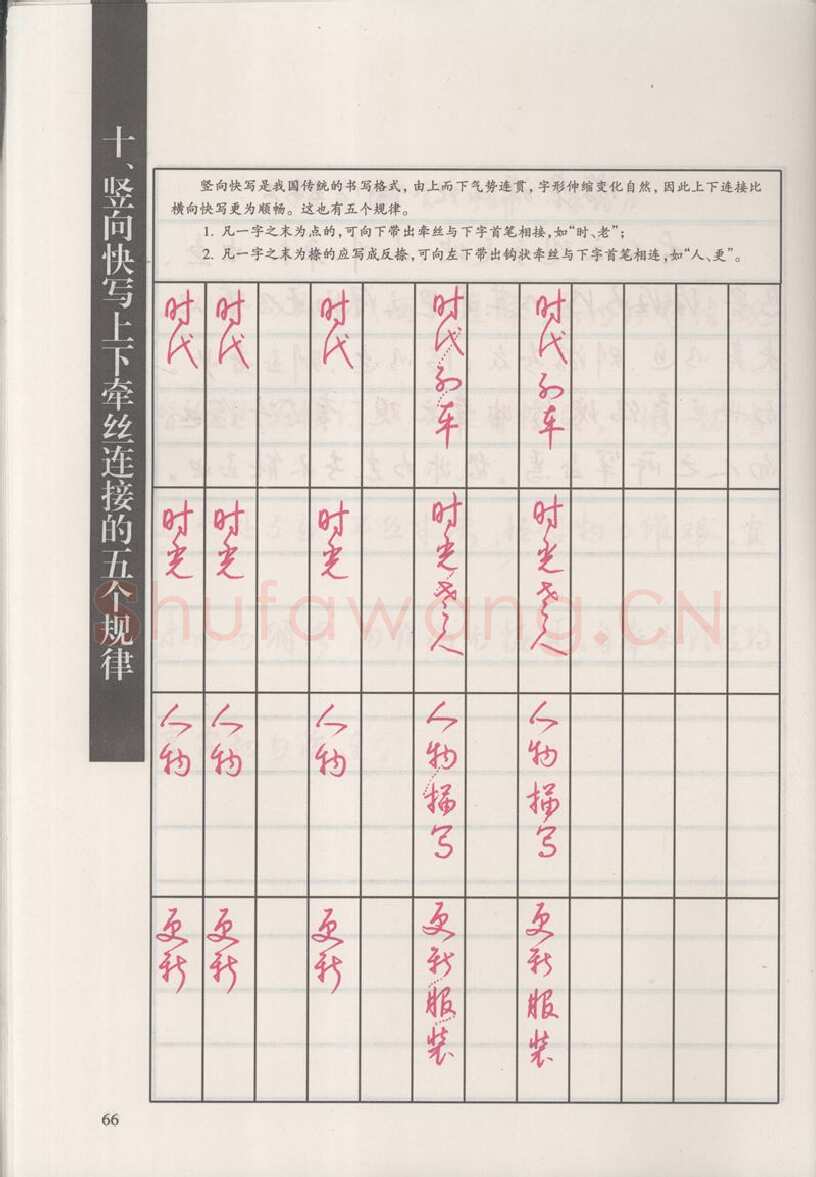 十、竖向快写上下牵丝连接的五个规律
竖向快写是我国传统的书写格式，由上而下气势连贯，字形伸缩变化自然，因此上下连接比
横向快写更为顺畅。这也有五个规律。
1. 凡一字之末为点的，可向下带出牵丝与下字首笔相接，如“时、老”；
2. 凡一字之末为捺的应写成反捺，可向左下带出钩状牵丝与下字首笔相连，如“人、更”。
时代
时代
时代
时代列车
时代列车
时光
时光
时光
时光老人
时光老人
人物
人物
人物
人物描写
人物描写
更新
更新
更新
更新服装
更新服装
Shufawang.CN
66